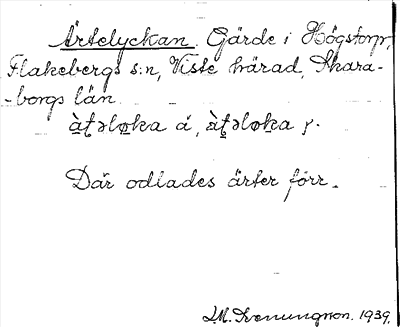 Ärtelyckan. Gärde i Högstorp,
Flakebergs s:n, Viste härad, Skara-
-borgs län.
à̠ţəlo̠ka á, à̠ţəlo̠ka y.
Där odlades ärter förr.
1939.